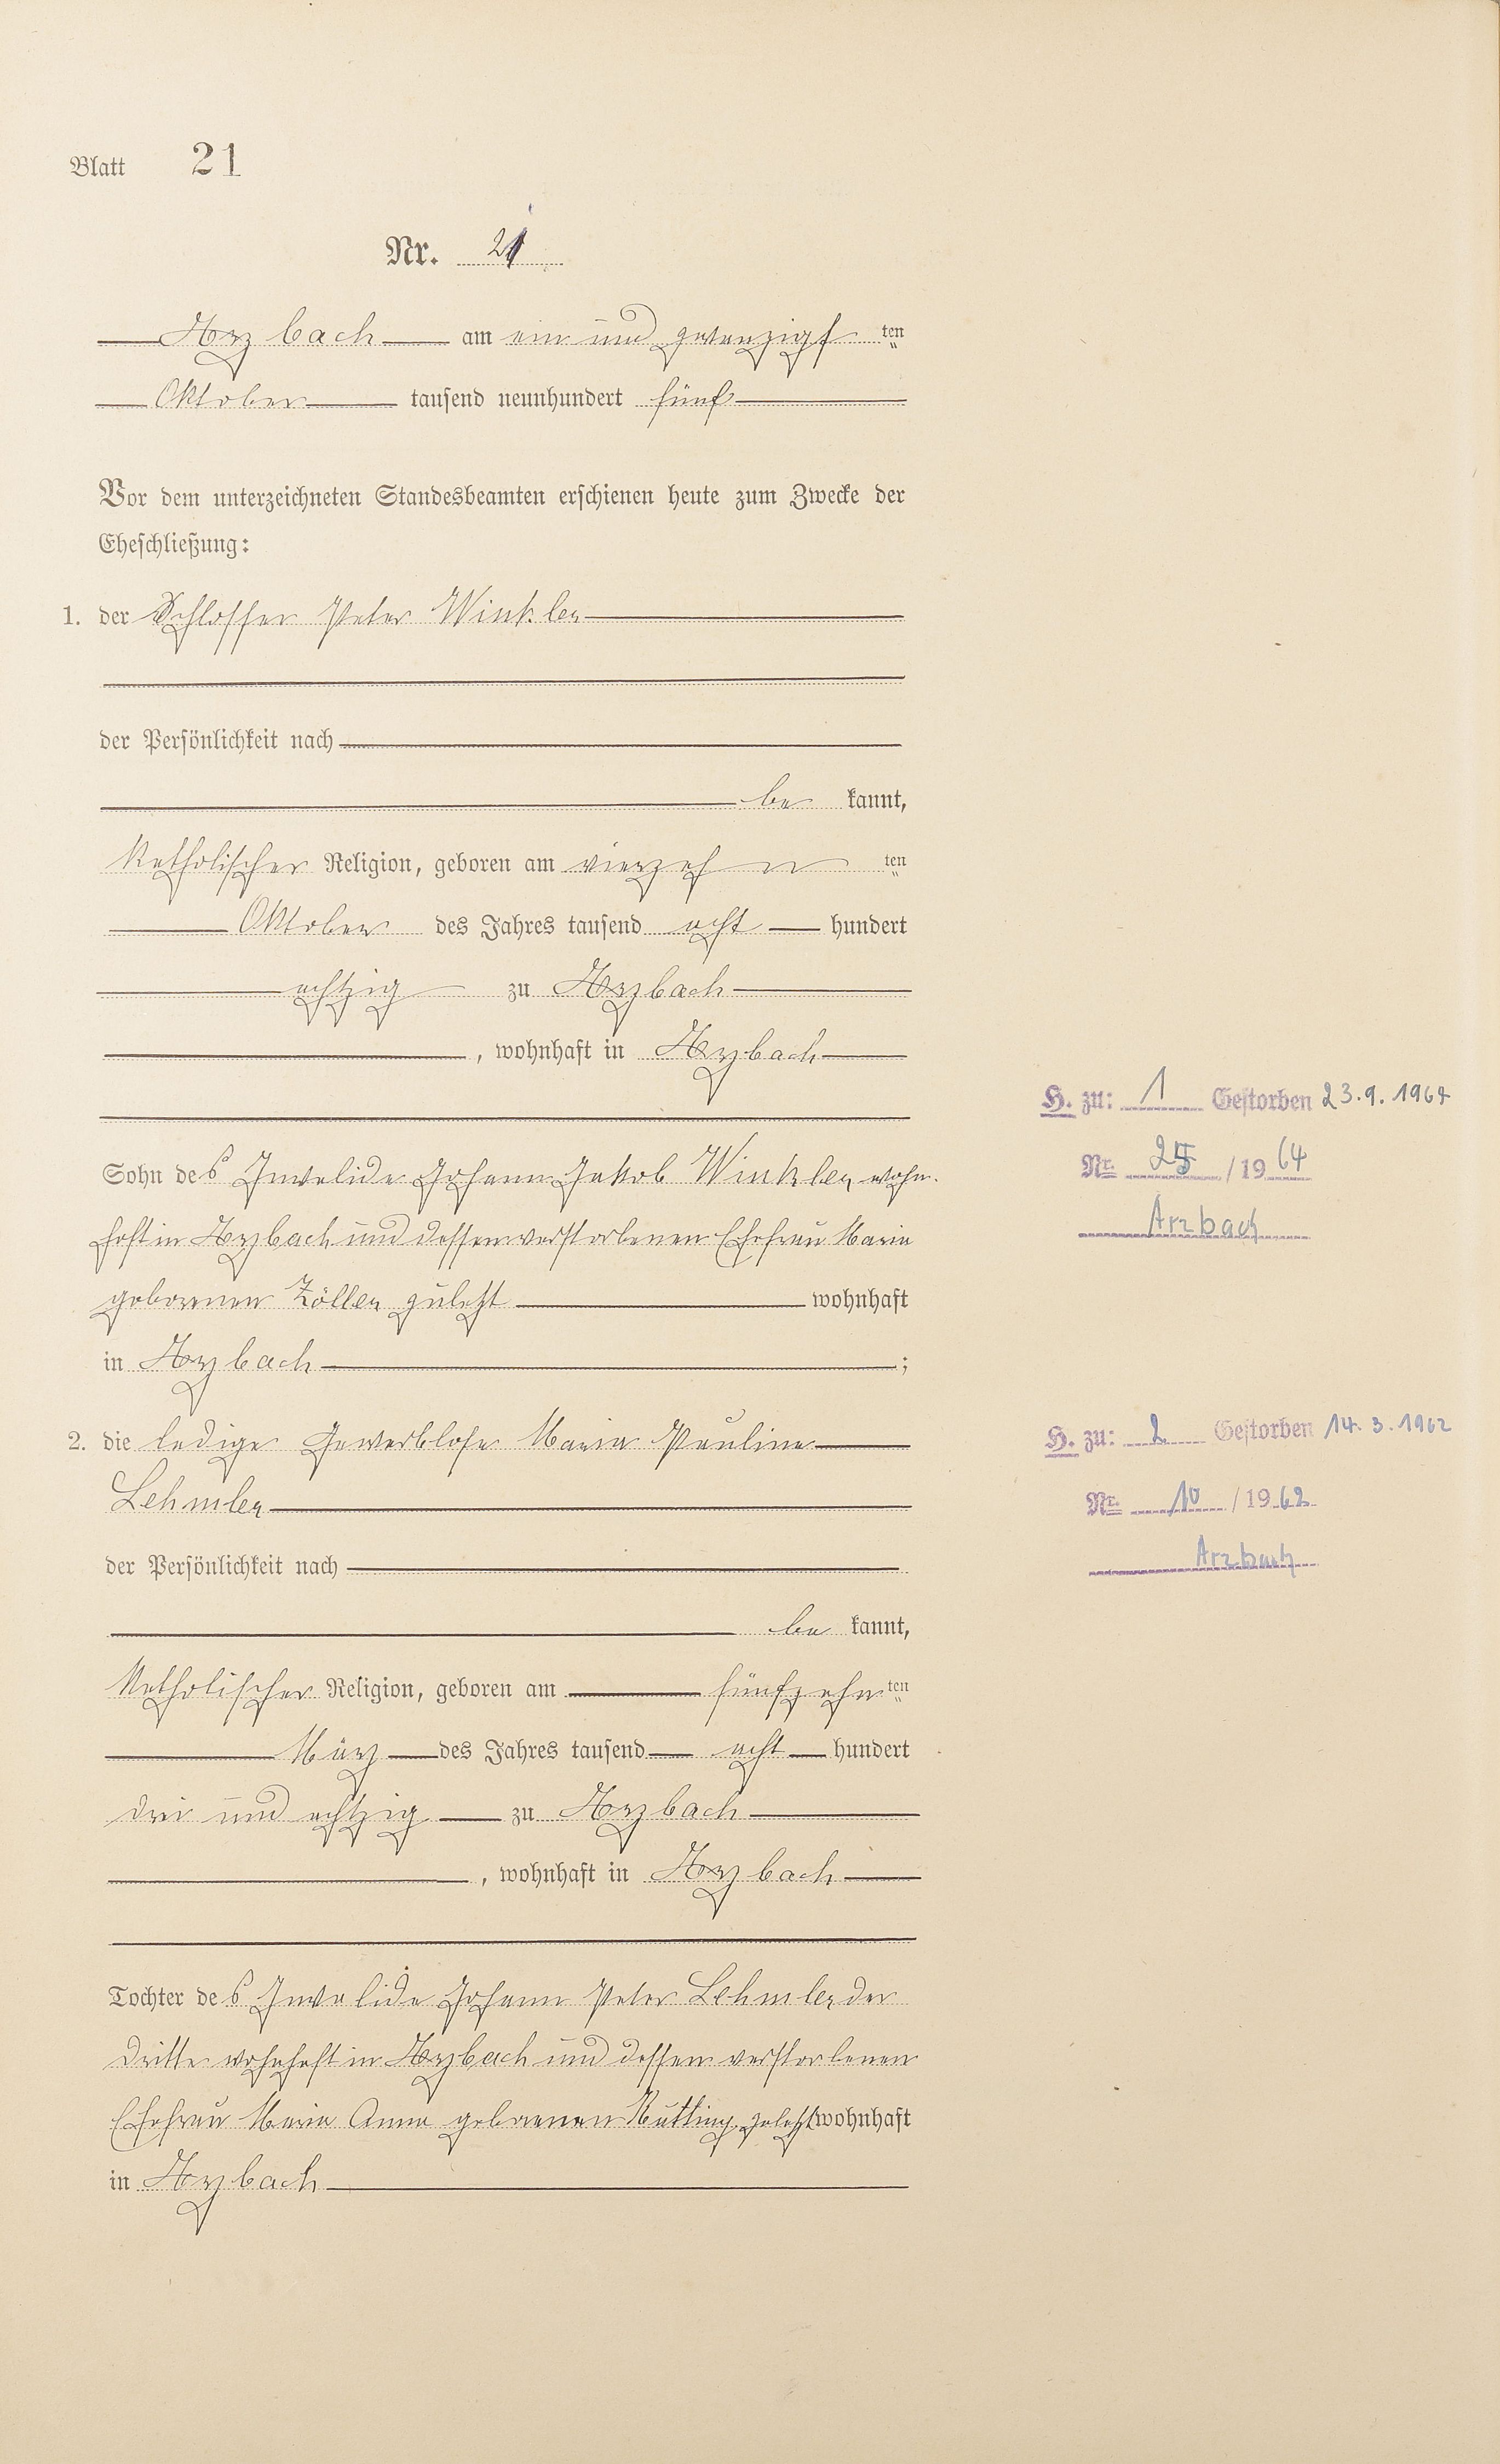 Blatt 21
Nr. 21
Arzbach am ein und zwanzigsten
Oktober tausend neunhundert fünf
Vor dem unterzeichneten Standesbeamten erschienen heute zum Zwecke der
Eheschließung:
1. der Schlosser Peter Winkler
der Persönlichkeit nach
be kannt,
Katholischer Religion, geboren am vierzehn ten
Oktober des Jahres tausend acht hundert
achtzig zu Arzbach
, wohnhaft in Arzbach
H. zu: 1 Gestorben 23.9.1964
Nr. 25 / 1964
Arzbach
Sohn des Invalide Johann Jakob Winkler wohn-
haft in Arzbach und dessen verstorbenen Ehefrau Maria
geborenen Zöller zuletzt wohnhaft
in Arzbach ;
2. die ledige Gewerblose Maria Pauline
Lehmler
H. zu: 2 Gestorben 14.3.1962
Nr. 10 / 1962
Arzbach
der Persönlichkeit nach
be kannt,
Katholischer Religion, geboren am fünfzehn ten
März des Jahres tausend acht hundert
drei und achtzig zu Arzbach
, wohnhaft in Arzbach
Tochter des Invalide Johann Peter Lehmler der
dritte wohnhaft in Arzbach und dessen verstorbenen
Ehefrau Maria Anna geborenen zuletzt wohnhaft
in Arzbach